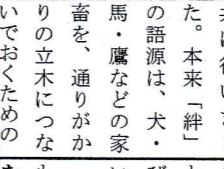 た。本来「絆」
の語源は、犬・
馬・鷹などの家
畜を、通りがか
りの立木につな
いでおくための